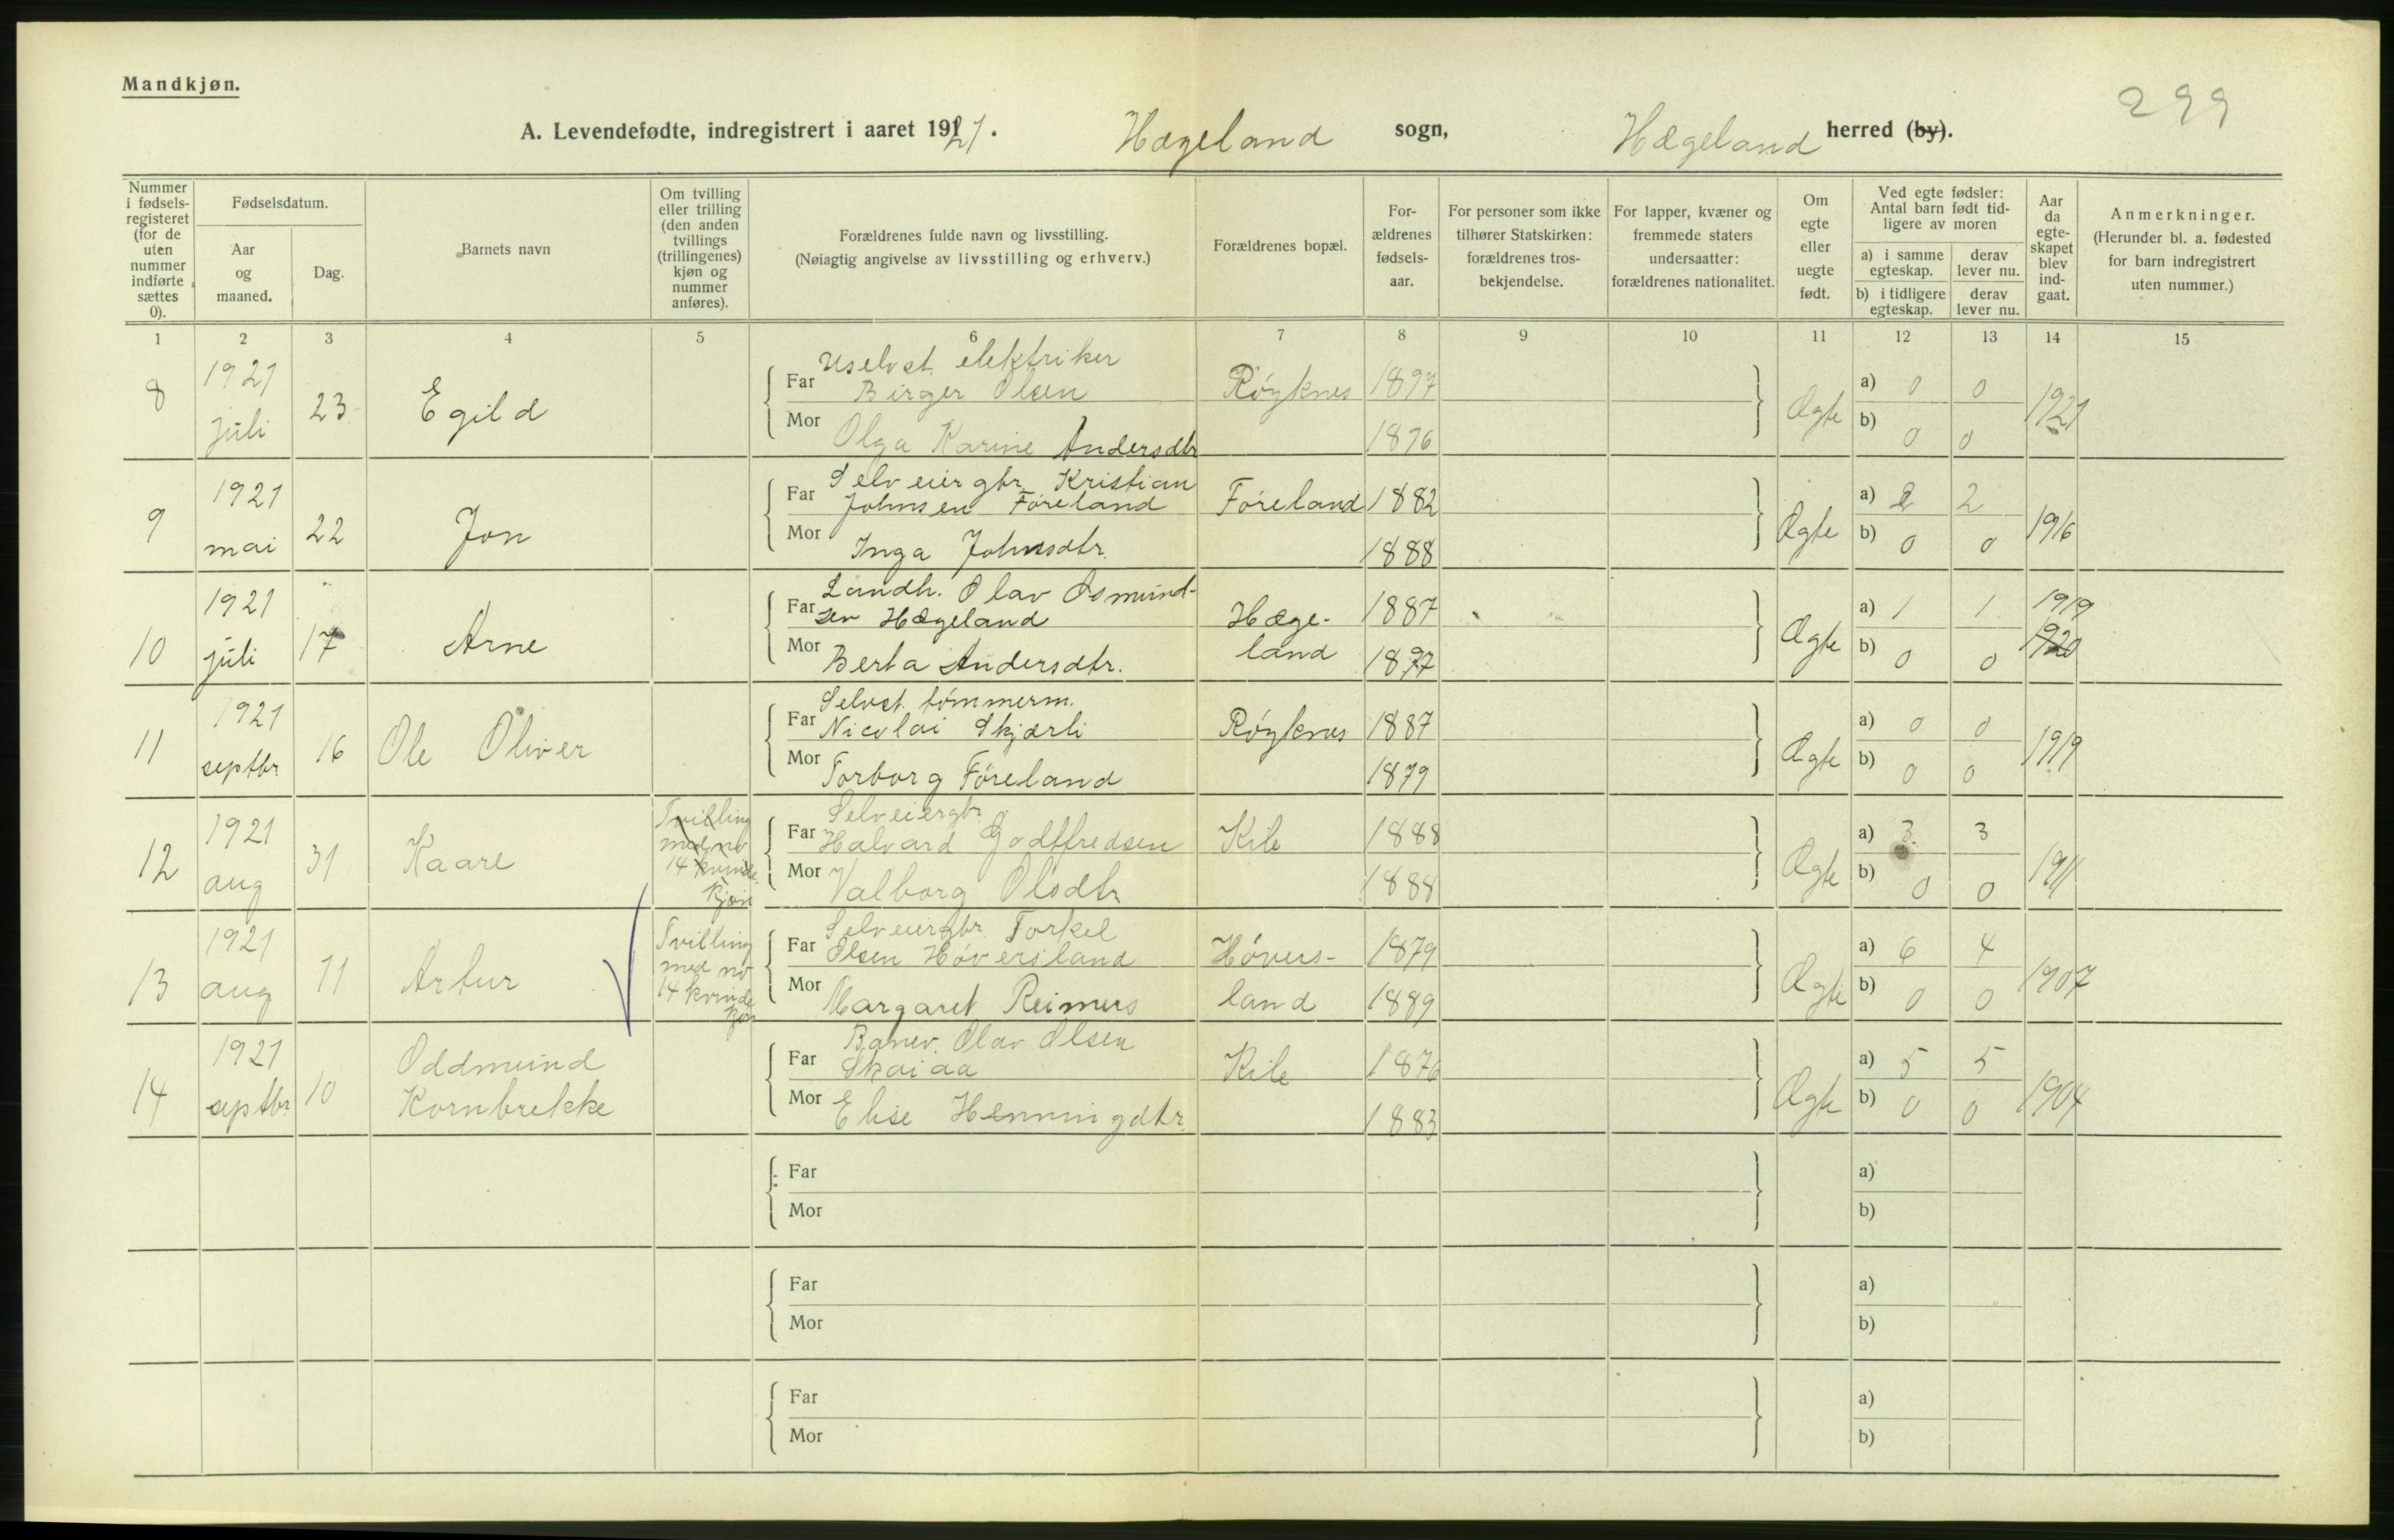 Mandkjøn.
299
A. Levendefødte, indregistrert i aaret 1921. Hægeland sogn, Hægeland herred (by).
Nummer i fødselsregisteret (for de uten nummer indførte sættes 0).
Fødselsdatum.
Aar og maaned.
Dag.
Barnets navn
Om tvilling eller trilling (den anden tvillings (trillingenes) kjøn og nummer anføres).
Forældrenes fulde navn og livsstilling.
(Nøiagtig angivelse av livsstilling og erhverv.)
Forældrenes bopæl.
For-ældrenes fødsels-aar.
For personer som ikke tilhører Statskirken: forældrenes tros-bekjendelse.
For lapper, kvæner og fremmede staters undersaatter: forældrenes nationalitet.
Om egte eller uegte født.
Ved egte fødsler: Antal barn født tid-ligere av moren
a) i samme egteskap.
derav lever nu.
b) i tidligere egteskap.
derav lever nu.
Aar da egte-skapet blev ind-gaat.
Anmerkninger.
(Herunder bl. a. fødested for barn indregistrert uten nummer.)
1 2 3 4 5 6 7 8 9 10 11 12 13 14 15
8 1921 juli 23 Egild
Uselvst. elektriker
Far Birger Olsen Røyknes 1897
Mor Olga Karine Andersdtr 1896
Ægte a) 0 0 b) 0 0 1921
9 1921 mai 22 Jon
Selveiergbr. Kristian
Far Johnsen Føreland Føreland 1882
Mor Inga Johnsdtr. 1888
Ægte a) 2 2 b) 0 0 1916
10 1921 juli 17 Arne
Landh. Olav Osmund-
Far sen Hægeland Hæge- 1887
Mor Berta Andersdtr. land 1897
Ægte a) 1 1 b) 0 0 1919 1920
11 1921 septbr 16 Ole Oliver
Selvst. tømmerm.
Far Nicolai Skjærli Røyknes 1887
Mor Torborg Føreland 1879
Ægte a) 0 0 b) 0 0 1919
12 1921 aug 31 Kaare
Tvilling med no 14 kvinde-kjøn
Selveiergbr.
Far Halvard Godtfredsen Kile 1888
Mor Valborg Olsdtr 1888
Ægte a) 3 3 b) 0 0 1911
13 1921 aug 11 Artur
Tvilling med no 14 kvinde kjøn
Selveiergbr. Torkel
Far Olsen Høversland Hövers- 1879
Mor Margaret Reimers land 1889
Ægte a) 6 4 b) 0 0 1907
14 1921 septbr. 10 Oddmund Kornbrekke
Banev. Olav Olsen
Far Skaiaa Kile 1876
Mor Elise Henningdtr. 1883
Ægte a) 5 5 b) 0 0 1904
Far
Mor
a)
b)
Far
Mor
a)
b)
Far
Mor
a)
b)